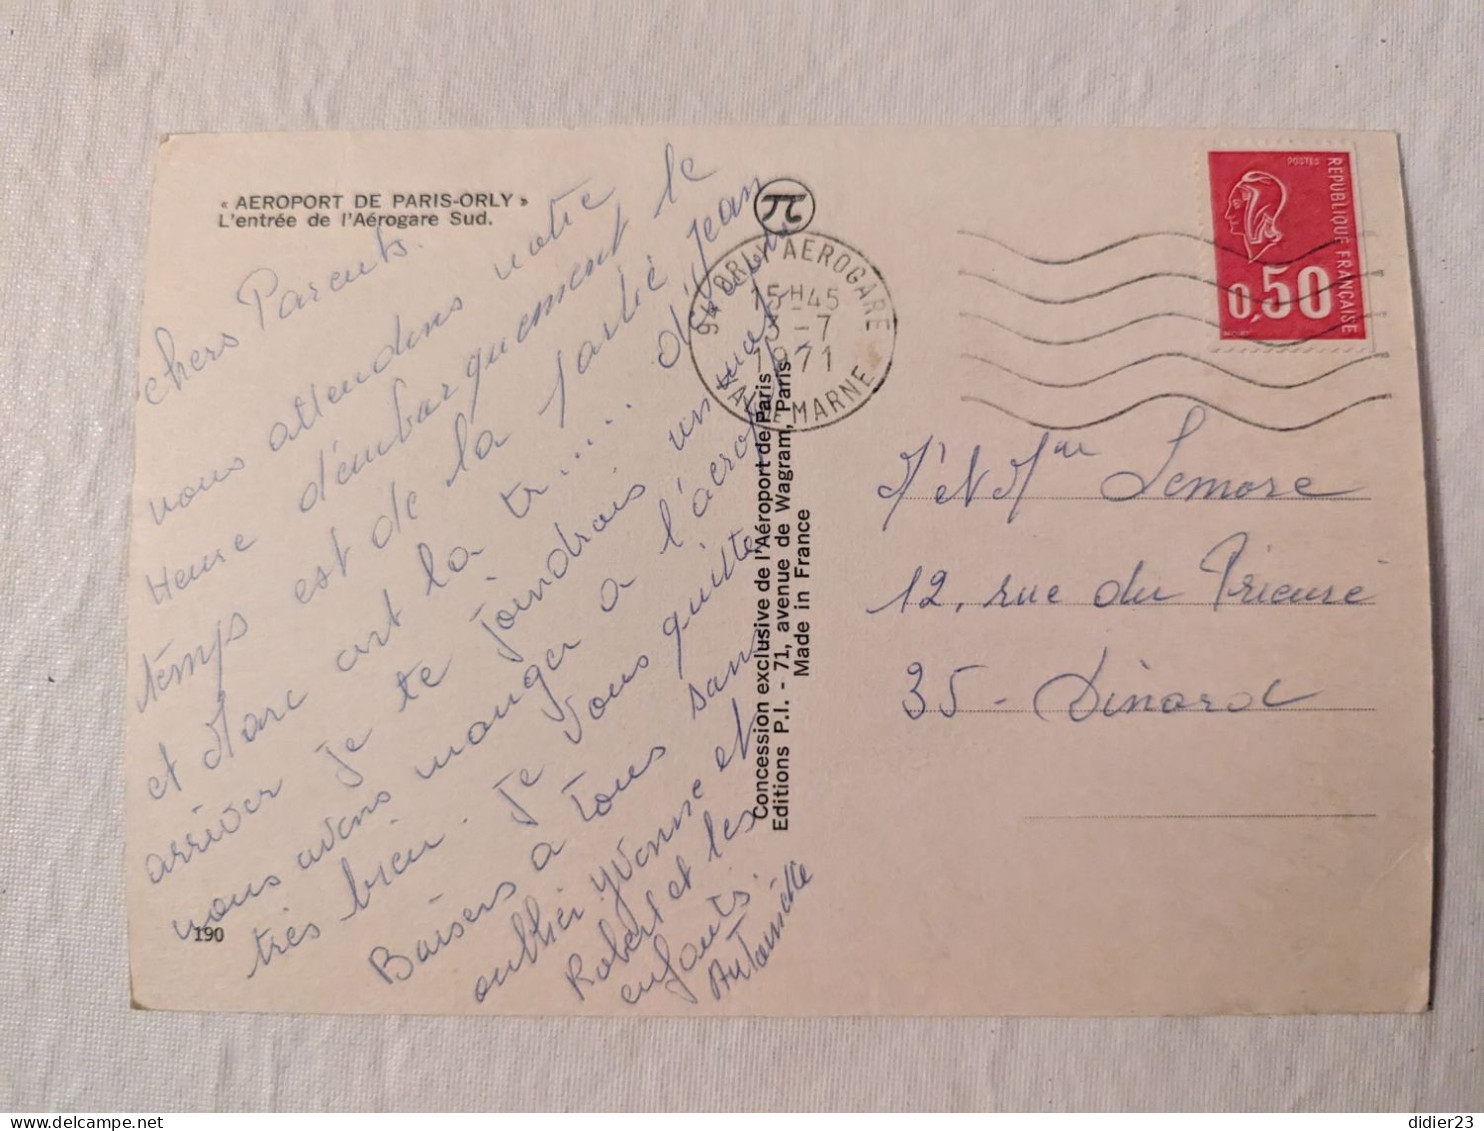 « AEROPORT DE PARIS-ORLY »
L'entrée de l'Aérogare Sud.
chers Parents.
nous attendons notre
Heure d'embarquement le
temps est de la partie Jean
et Marc ont la tr.... d'y
arriver je te joindrais un
nous avons manger a l'aeroport
très bien. Je vous quitte
Baisers a tous sans
oublier Yvonne et
Robert et les
enfants.
Antoinette
190
Concession exclusive de l'Aéroport de Paris
Editions P.I. - 71, avenue de Wagram, Paris
Made in France
π
94 ORLY AEROGARE
15H45
-7
1971
VAL DE MARNE
POSTES
REPUBLIQUE FRANÇAISE
0,50
M et Mme Lemore
12, rue du Prieuré
35 - Dinard
didier23